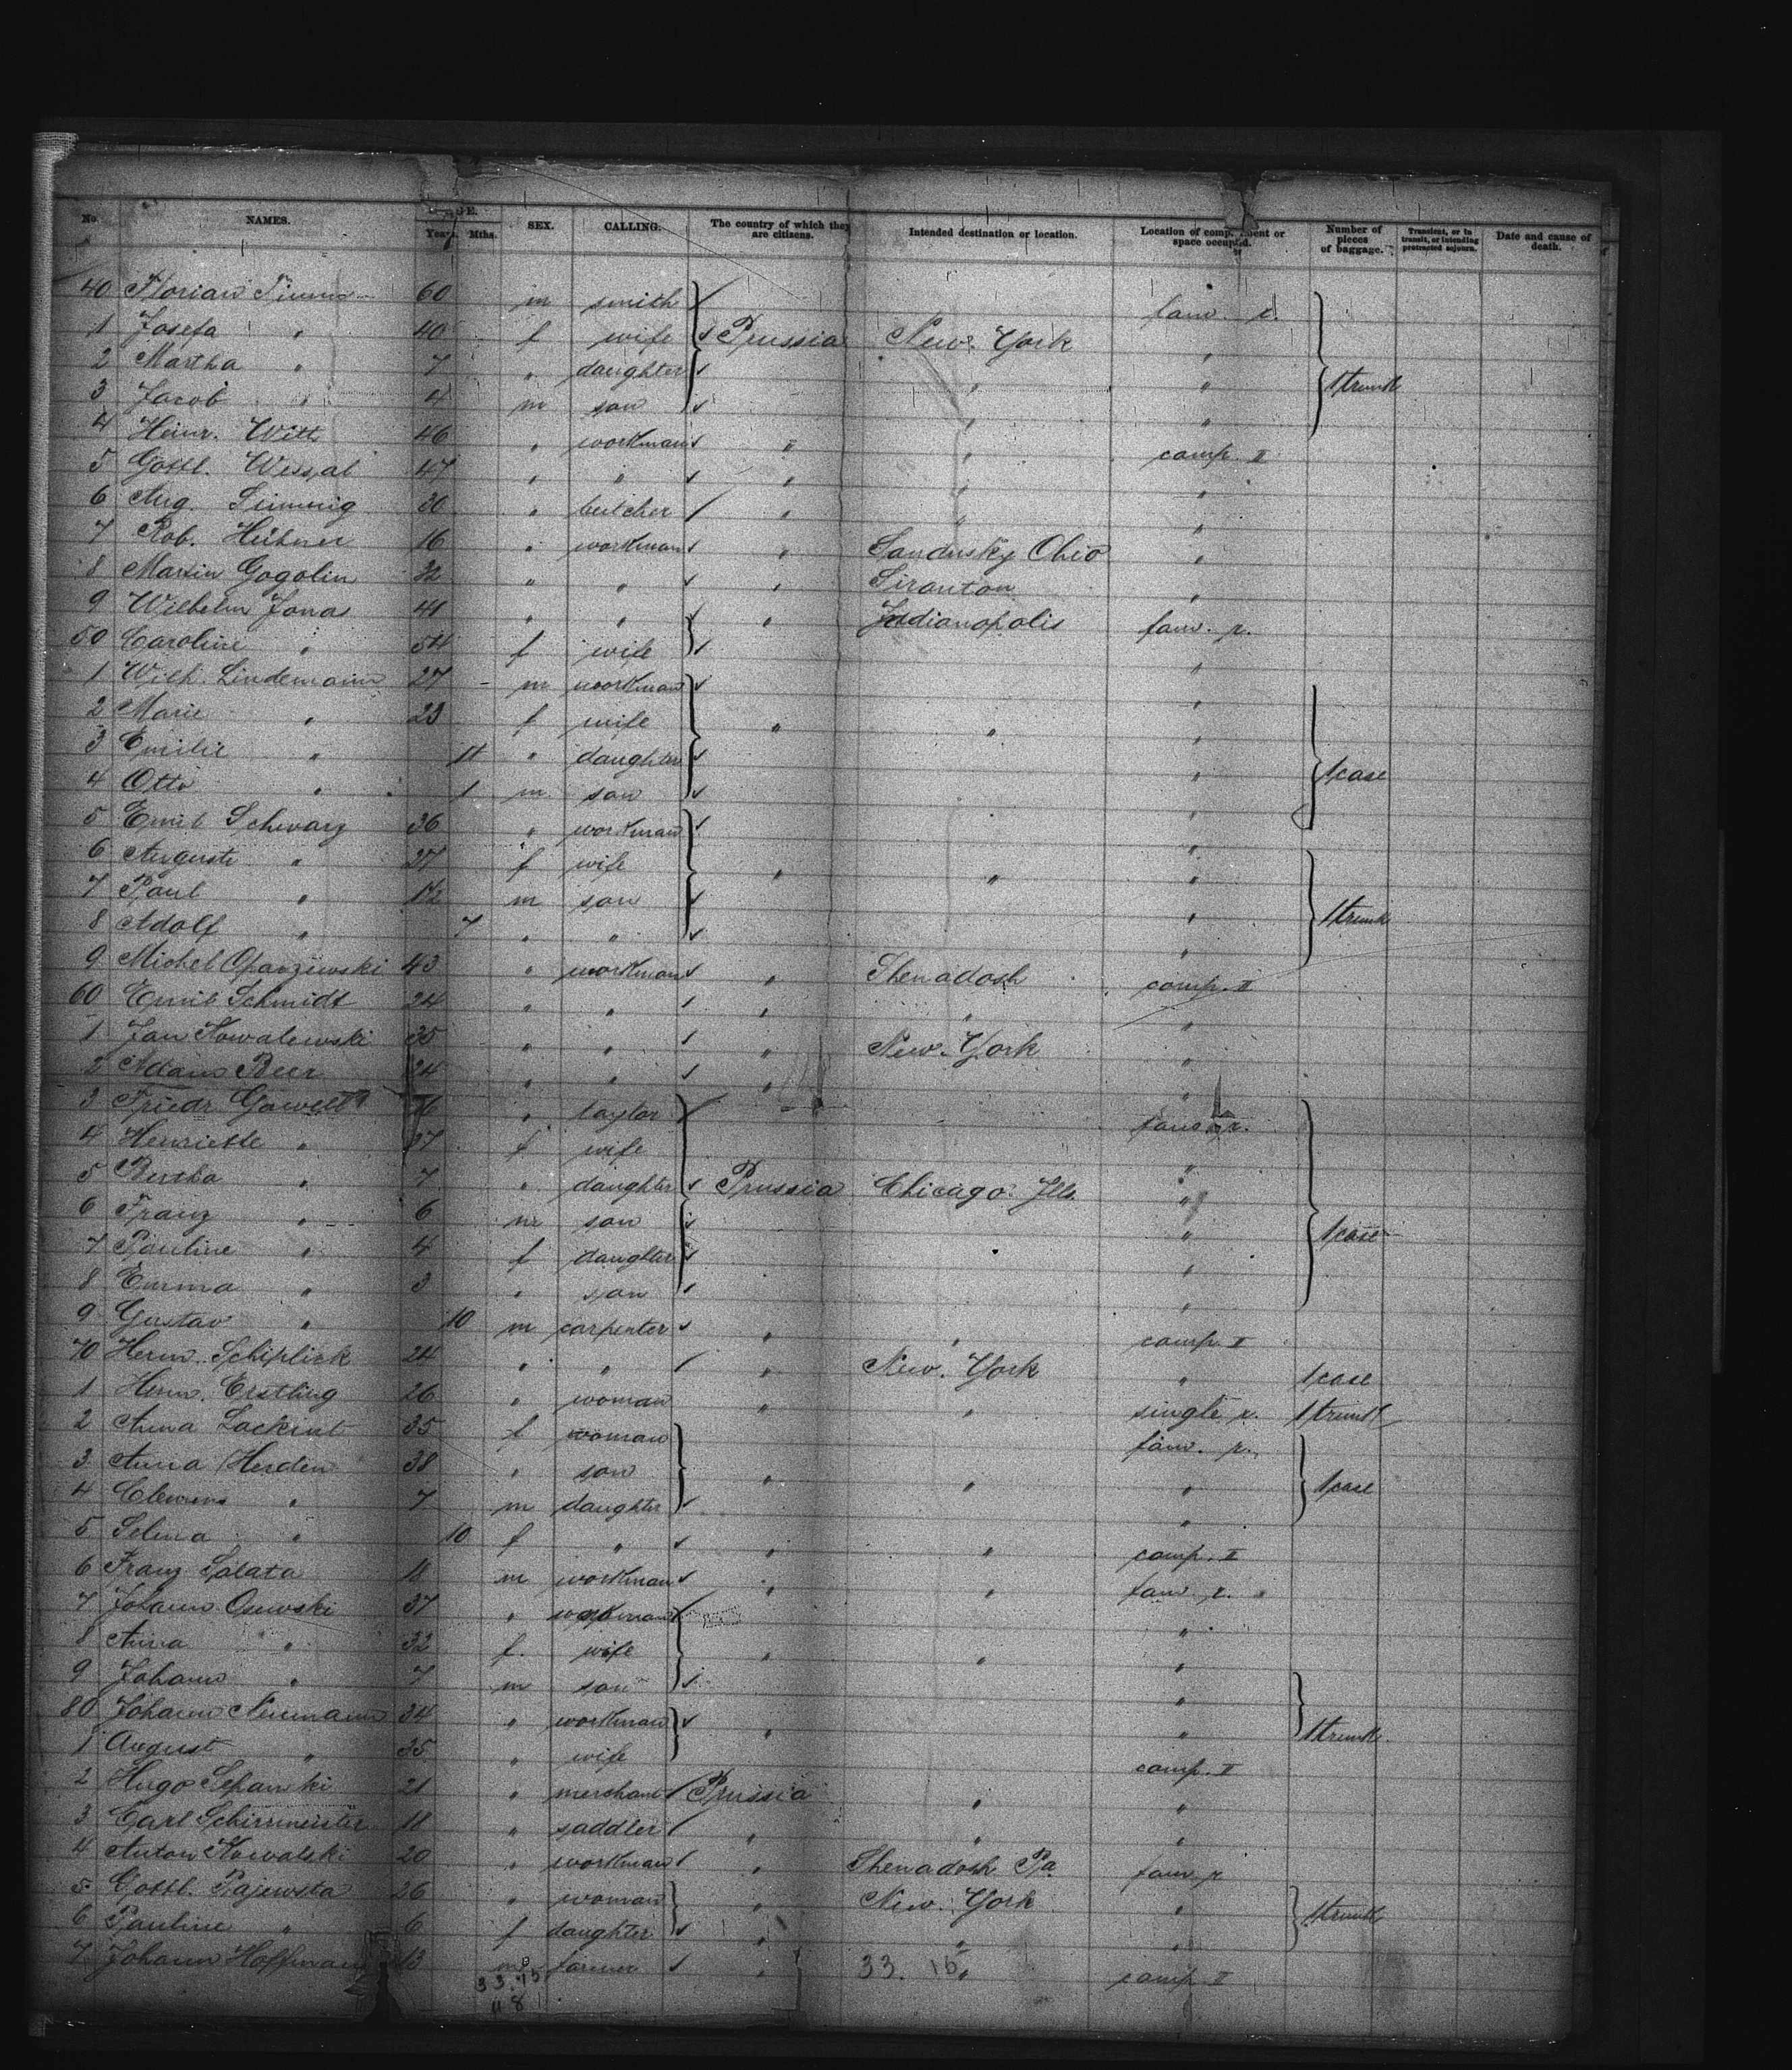 No. NAMES. AGE. Years. Mths. SEX. CALLING. The country of which they are citizens. Intended destination or location. Location of compartment or space occupied. Number of pieces of baggage. Transient, or in transit, or intending protracted sojourn. Date and cause of death.
40 Florian 60 m smith fam. r.
1 Josefa " 40 f wife Prussia New York "
2 Martha " 7 " daughter " " 1 trunk
3 Jacob " 4 m son " "
4 Heinr. Witt 46 " workman " " comp. II
5 Gottl. Wessal 47 " " " " "
6 Aug. 30 " butcher " " "
7 Rob. Hübner 16 " workman " Sandusky Ohio "
8 Martin Gogolin 32 " " " Siranton "
9 Wilhelm Jona 41 " " " Indianopolis fam. r.
50 Caroline " 54 f wife "
1 Wilh. Lindemann 27 m workman "
2 Marie " 23 f wife " " "
3 Emilie " 11 " daughter " 1 case
4 Otto " 1 m son "
5 Emil Schwarz 36 " workman "
6 Auguste " 27 f wife " " "
7 Paul " 1 1/2 m son " 1 trunk
8 Adolf " 7 " " "
9 Michel Oparziewski 43 " workman " Shenadosh comp. II
60 Emil Schmidt 24 " " " " "
1 Jan Kowalewski 35 " " " New York "
2 Adam Beer 24 " " " "
3 Friedr. Gawell 36 " taylor fam. r.
4 Henriette " 37 f wife "
5 Bertha " 7 " daughter Prussia Chicago Ills. "
6 Franz " 6 m son " 1 case
7 Pauline " 4 f daughter "
8 Emma " 3 " son "
9 Gustav " 10 m carpenter " " comp. II
70 Herm. Schiplick 24 " " " New York " 1 case
1 Herm. Erstling 26 " woman " " single r. 1 trunk
2 Anna Lockint 35 f woman fam. r.
3 Anna Herden 38 " son " " " 1 case
4 Clemens " 7 m daughter "
5 Selma " 10 f " " " comp. II
6 Franz Salata 11 m workman " " fam. r.
7 Johann Osowski 37 " workman "
8 Anna " 32 f wife " " "
9 Johann " 7 m son "
80 Johann Neumann 34 " workman " " 1 trunk
1 August " 35 " wife comp. II
2 Hugo 21 " merchant Prussia " "
3 Carl Schirrmeister 18 " saddler " " "
4 Anton Kowalski 20 " workman " Shenadosh Pa. fam. r
5 Gottl. Pajewsta 26 " woman " New York " 1 trunk
6 Pauline " 6 f daughter " " "
7 Johann Hoffmann 13 m farmer " " comp. II
33. 15
33. 15